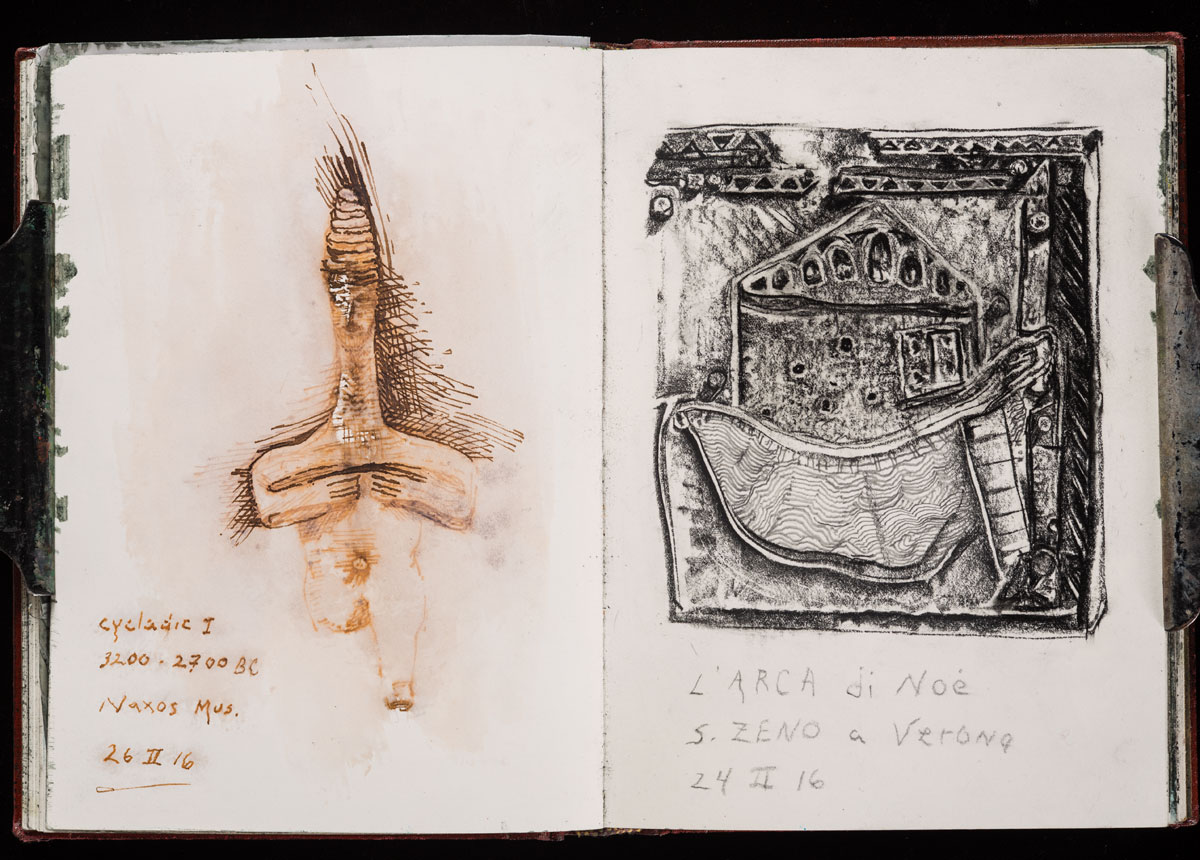 cycladic I
3200 - 2700 BC
Naxos Mus.
26 II 16
L'ARCA di Noé
S. ZENO a Verona
24 II 16